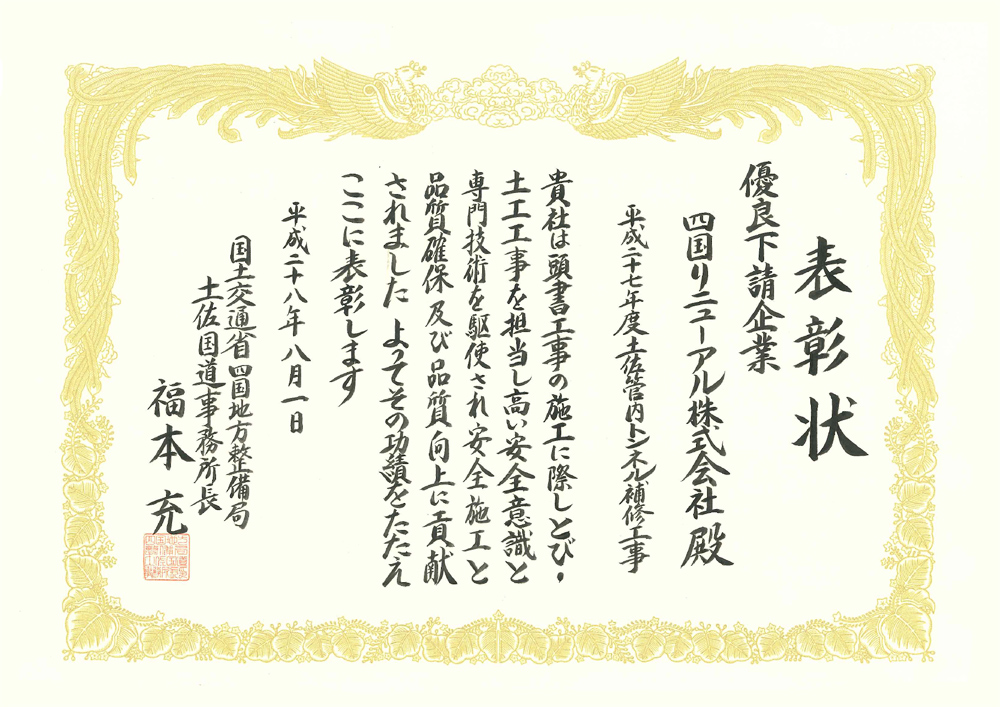 表彰状
優良下請企業
四国リニューアル株式会社 殿
平成二十七年度土佐管内トンネル補修工事
貴社は頭書工事の施工に際しとび・
土工工事を担当し高い安全意識と
専門技術を駆使され安全施工と
品質確保及び品質向上に貢献
されました よってその功績をたたえ
ここに表彰します
平成二十八年八月一日
国土交通省四国地方整備局
土佐国道事務所長
福本 充